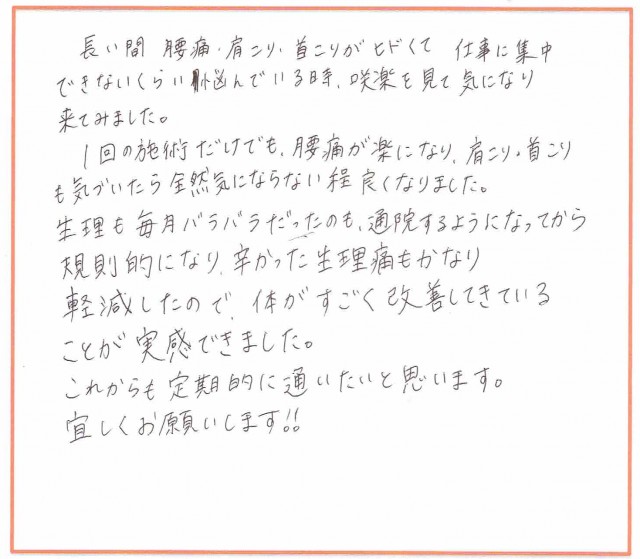 長い間 腰痛・肩こり・首こりがヒドくて 仕事に集中
できないくらい悩んでいる時、咲楽を見て気になり
来てみました。
1回の施術だけでも、腰痛が楽になり、肩こり・首こり
も気づいたら全然気にならない程良くなりました。
生理も毎月バラバラだったのも、通院するようになってから
規則的になり、辛かった生理痛もかなり
軽減したので、体がすごく改善してきている
ことが実感できました。
これからも定期的に通いたいと思います。
宜しくお願いします!!